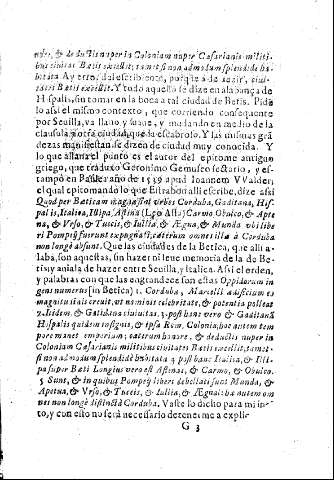 nore, & deductis nuper in Coloniam nuper Cæsarianis militi-
bus civitas Bætis excellit, tametsi non admodum splendide ha-
bitata. Ay error del escribiente, porque à de dezir, civi-
tates Bætis excellit. Y todo aquello se dize en alabança de
Hispalis, sin tomar en la boca a tal ciudad de Betis. Pide
lo assi el mismo contexto, que corriendo consequente
por Sevilla, va llano, y suave, y mudando en medio de la
clausula à otra ciudad, queda escabroso. Y las mismas grã
dezas manifiestan se dizen de ciudad muy conocida. Y
lo que allana el punto es el autor del epitome antiguo
griego, que traduxo Geronimo Gemuseo lestario, y es-
tampò en Basilea año de 1539 apud Ioannem VValder,
el qual epitomando lo que Estrabon alli escribe, dize assi
Quod per Bæticam magnæ sint urbes Corduba, Gaditana, His-
palis, Italica, Illipa, Astina (Leo Asta) Carmo, Obulco, & Apte
na, & Urso, & Tuccis, & Iullia, & Ægna, & Munda ubi libe
ri Pompeij fuerunt expugnati, cæterum omnes illæ à Corduba
non longè absunt. Que las ciudades de la Betica, que alli a-
laba, son aquestas, sin hazer ni leve memoria de la de Be-
tis y aniala de hazer entre Sevilla, y Italica. Assi el orden,
y palabras con que las engrandece son estas Oppidorum in
gens numerus [in Betica] 1. Corduba, Marcelli ædificium ex
magnitudinis creuit, ut nominis celebritate, & potentia polleat
2. Itidem, & Gaditana civitas. 3. post hanc vero, & Gaditanã
Hispalis quidem insignis, & ipsa Rom. Colonia, hoc autem tem
pore manet emporium; cæterum honore, & deductis nuper in
Coloniam Cæsarianis militibus civitates Bætis excellit, tamet-
si non admodum splendidè habitata 4 post hanc Italica, & Illi-
pa super Bæti Longius vero est Astinas, & Carmo, & Obulco.
5 Sunt, & in quibus Pompeij liberi debellati sunt Munda, &
Apetua, & Urso, & Tuccis, & Iullia, & Ægnai: hæ autem om
nes non longè distãt à Corduba. Vaste lo dicho para mi in-
to, y con esto no serà necessario detenerme a explir-
G 3